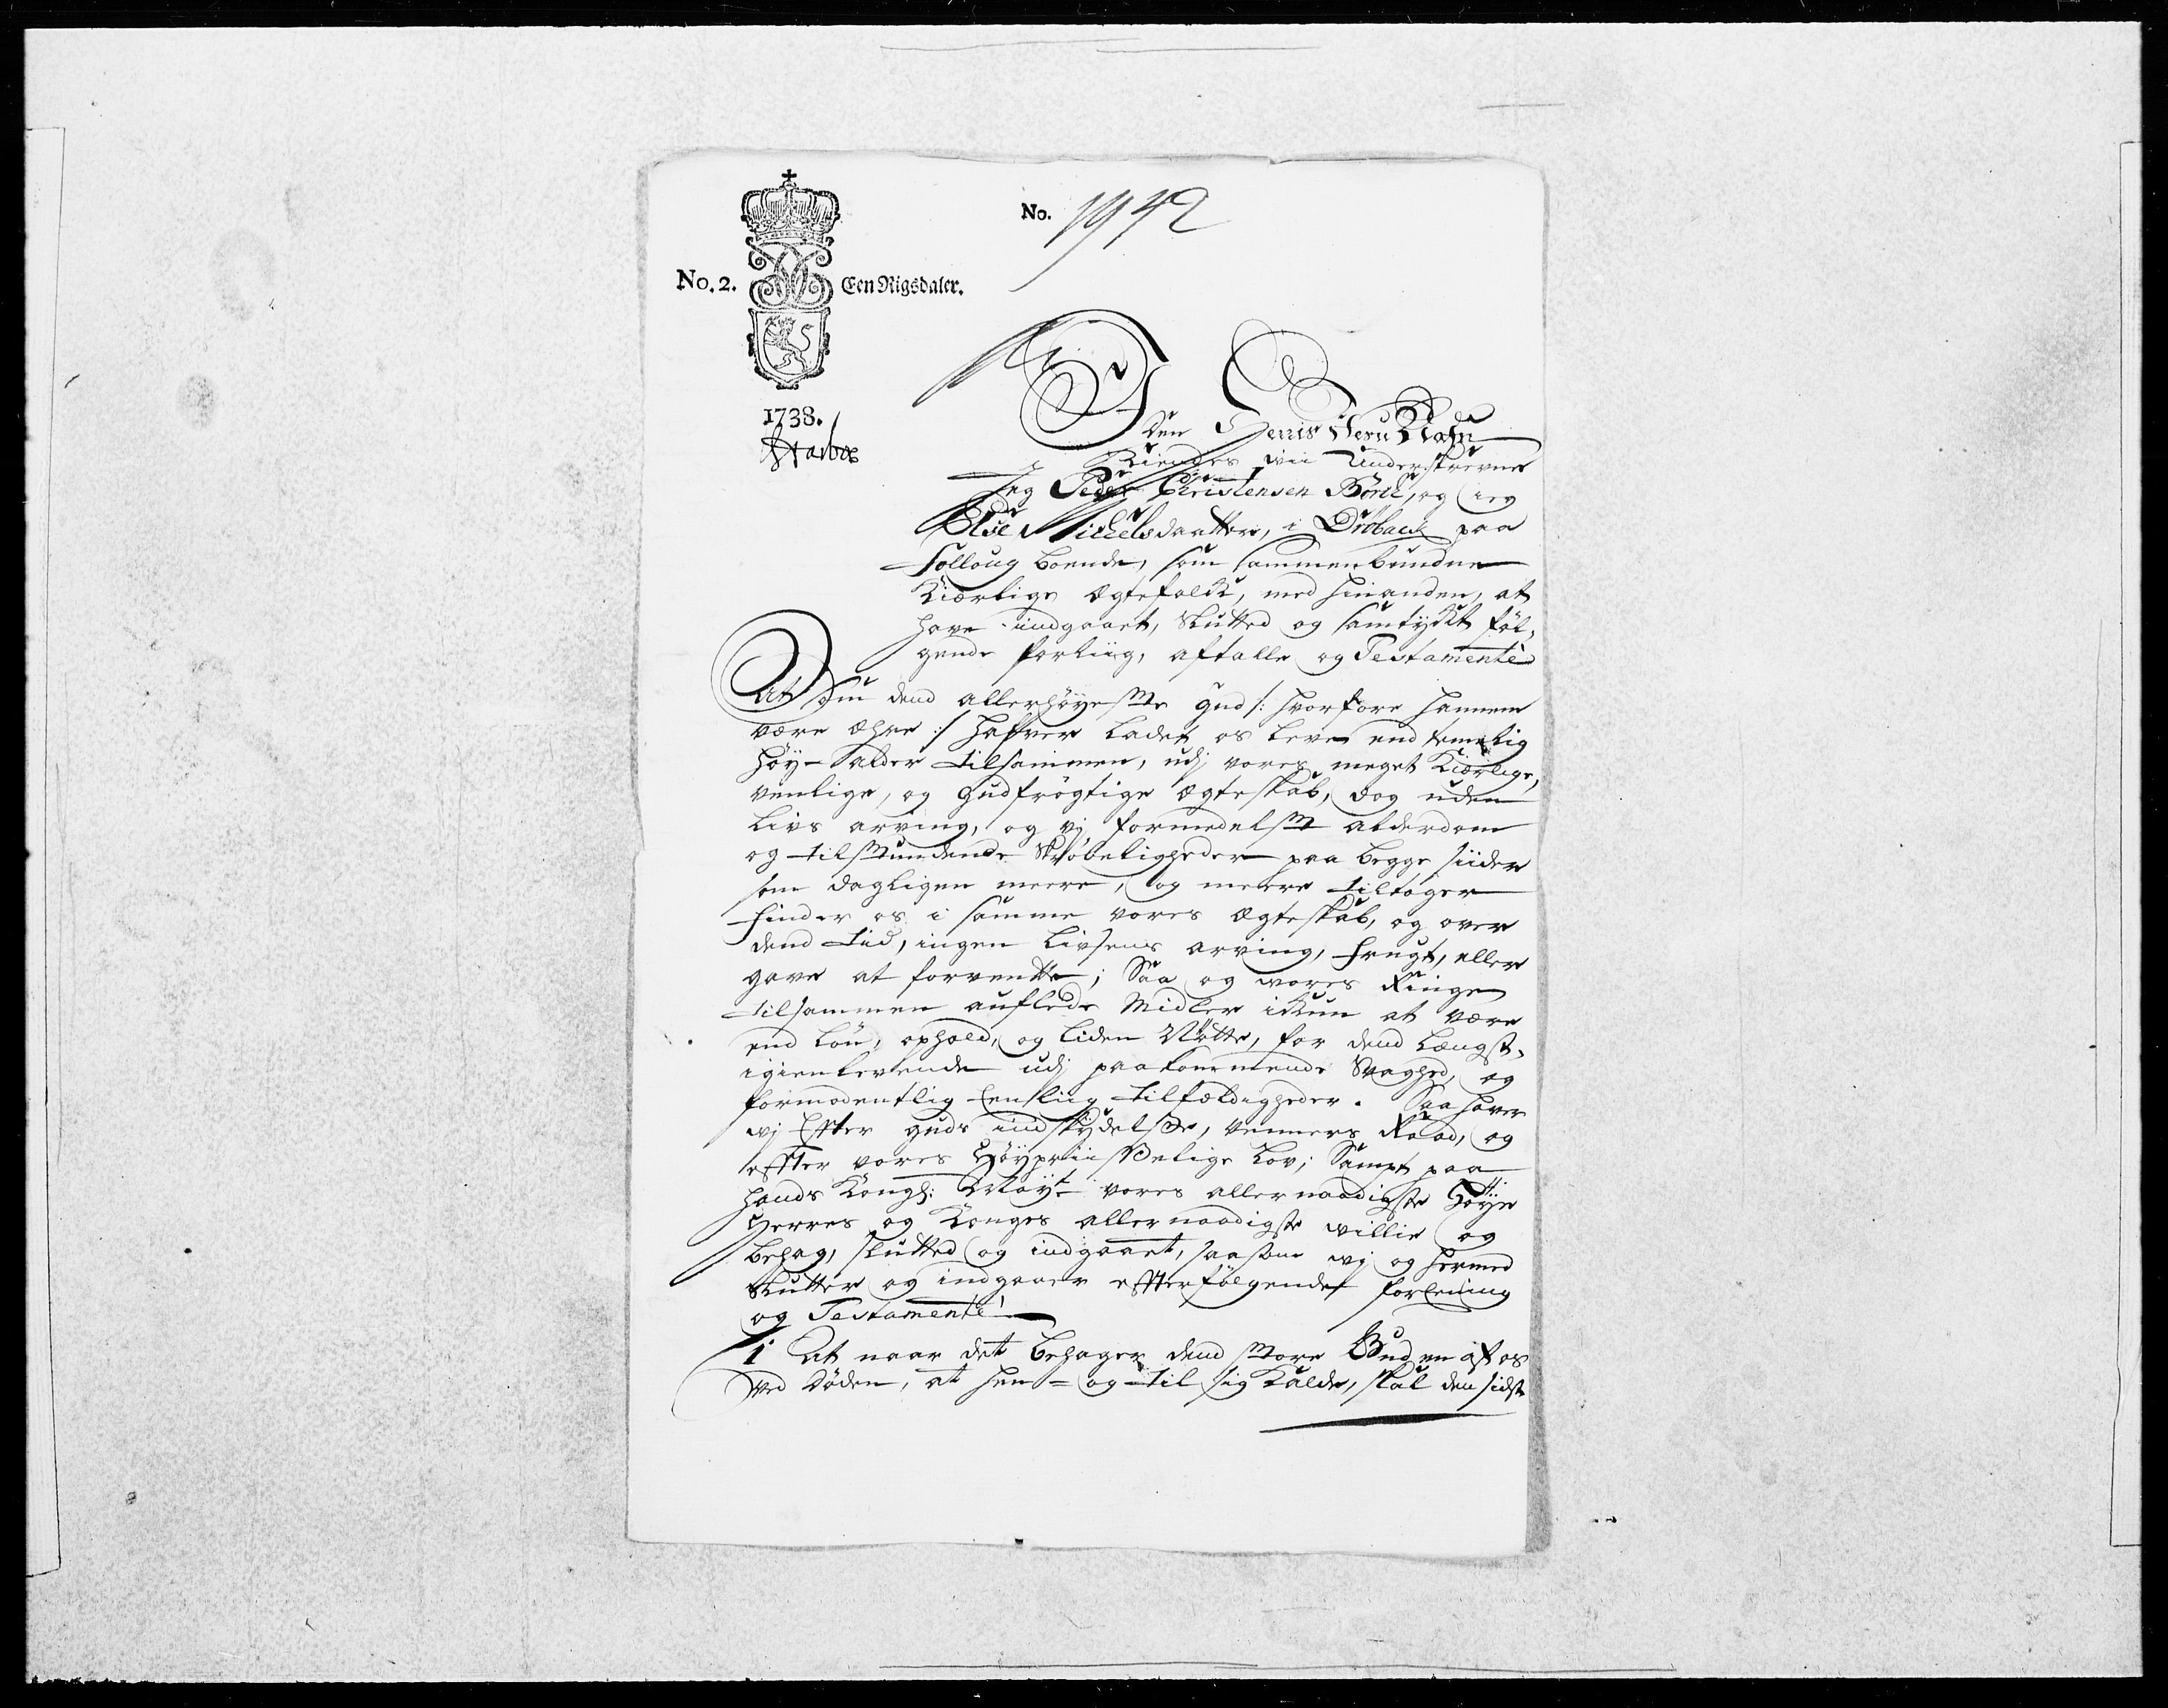 No. 1942
No. 2. Een Rigsdaler.
1738.
I
Den Herris Jesu Nafn
Kiendes wii Underskrevne
Jeg Peder Christensen Börck, og ieg
Else Michelsdaatter, i Dröback paa
Folloug boende, som sammenbundne
Kiærlige ægtefolck, med hinanden, at
have indgaaet, Slutted og samtyckt föl-
gende forliig, aftalle og Testamente
At Som dend allerhöyeste Gud /: hvorfore hannem
være ære :/ hafver ladet os leve end temelig
höy-alder tilsammen, udj vores meget Kiærlige,
venlige, og gudfrögtige ægteskab, dog uden
Livs arving, og vj formedelst alderdom
og tilstundende Skröbeligheder paa begge siider
som dagligen meere, og meere tiltager
finder os i samme vores ægteskab, og over
dend tid, ingen Livsens arving, frugt, eller
gave at forvente; Saa og vores Ringe
tilsammen auflede Midler ickun at være
end lön, ophold, og liden Nötte, for dend længst-
igienlevende udj paakommende Svaghed, og
formodentlig Eenslig tilfældigheder. Saa haver
wj Efter guds indskydelse, venners Raad, og
effter vores Höypriisselige Lov; Sampt paa
hands Kongl: Mayt. vores allernaadigste Höye
Herres og Konges allernaadigste willie og
behag, slutted og indgaaet, saasom wj og hermed
Slutter og indgaaer effterfölgende forEening
og Testamente
1 At naar det behager dend store Gud en af os
ved döden, at hen- og til sig Kalde, skal den sidst